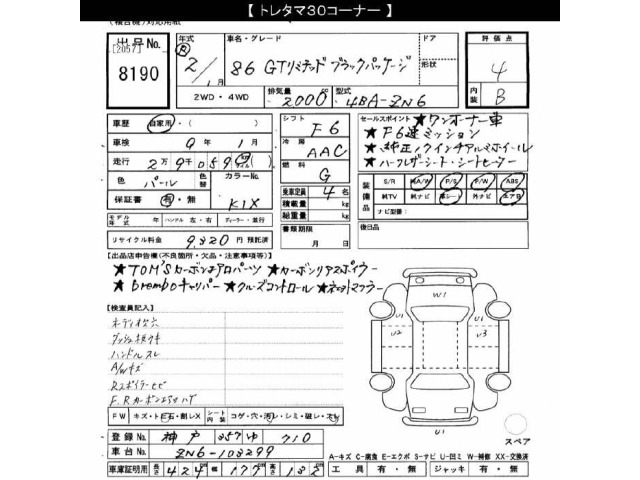 【 トレタマ30コーナー 】
出品No.
[2057]
8190
年式 車名・グレード ドア 評価点
R 2/1月 86 GTリミテッド ブラックパッケージ 形状 4
2WD・4WD 排気量 2000 型式 4BA-ZN6 内装 B
車歴 自家用・( )
シフト F6
セールスポイント ★ワンオーナー車
★F6速ミッション
車検 9年 1月
冷房 AAC
★純正17インチアルミホイール
★ハーフレザーシート・シートヒーター
走行 2万9千059
燃料 G
色 パール 色替 カラーNo. K1X
乗車定員 4名
積載量 kg
総重量 kg
装備品 S/R 純A/W P/S P/W ABS
純TV 純ナビ 革シート 外ナビ エアB
ナビ型番:
保証書 有・無
モデル年式 年 ハンドル 左・右 ディーラー・並行
書類期限 月 日
後日品
リサイクル料金 9,320円 預託済
【出品店申告欄(不良箇所・欠品・注意事項等)】
★TOM'Sカーボンエアロパーツ ★カーボンリアスポイラー
★Bremboキャリパー ★クルーズコントロール ★
【検査員記入】
ハンドルスレ
A/Wキズ
F.Rカーボンエアロハゲ
FW キズ・トビ石・割レX シート内装 コゲ・穴・汚レ・シミ・破レ・スレ
W1
U1
U1
U2
U3
U1
スペア
登録No. 神戸 357 ゆ 710
車台No. ZN6-108299
A-キズ C-腐食 E-エクボ S-サビ U-凹ミ W-補修 XX-交換済
車庫証明用 長さ 424 幅 177 高さ 132
工具 有・無 ジャッキ 有・無